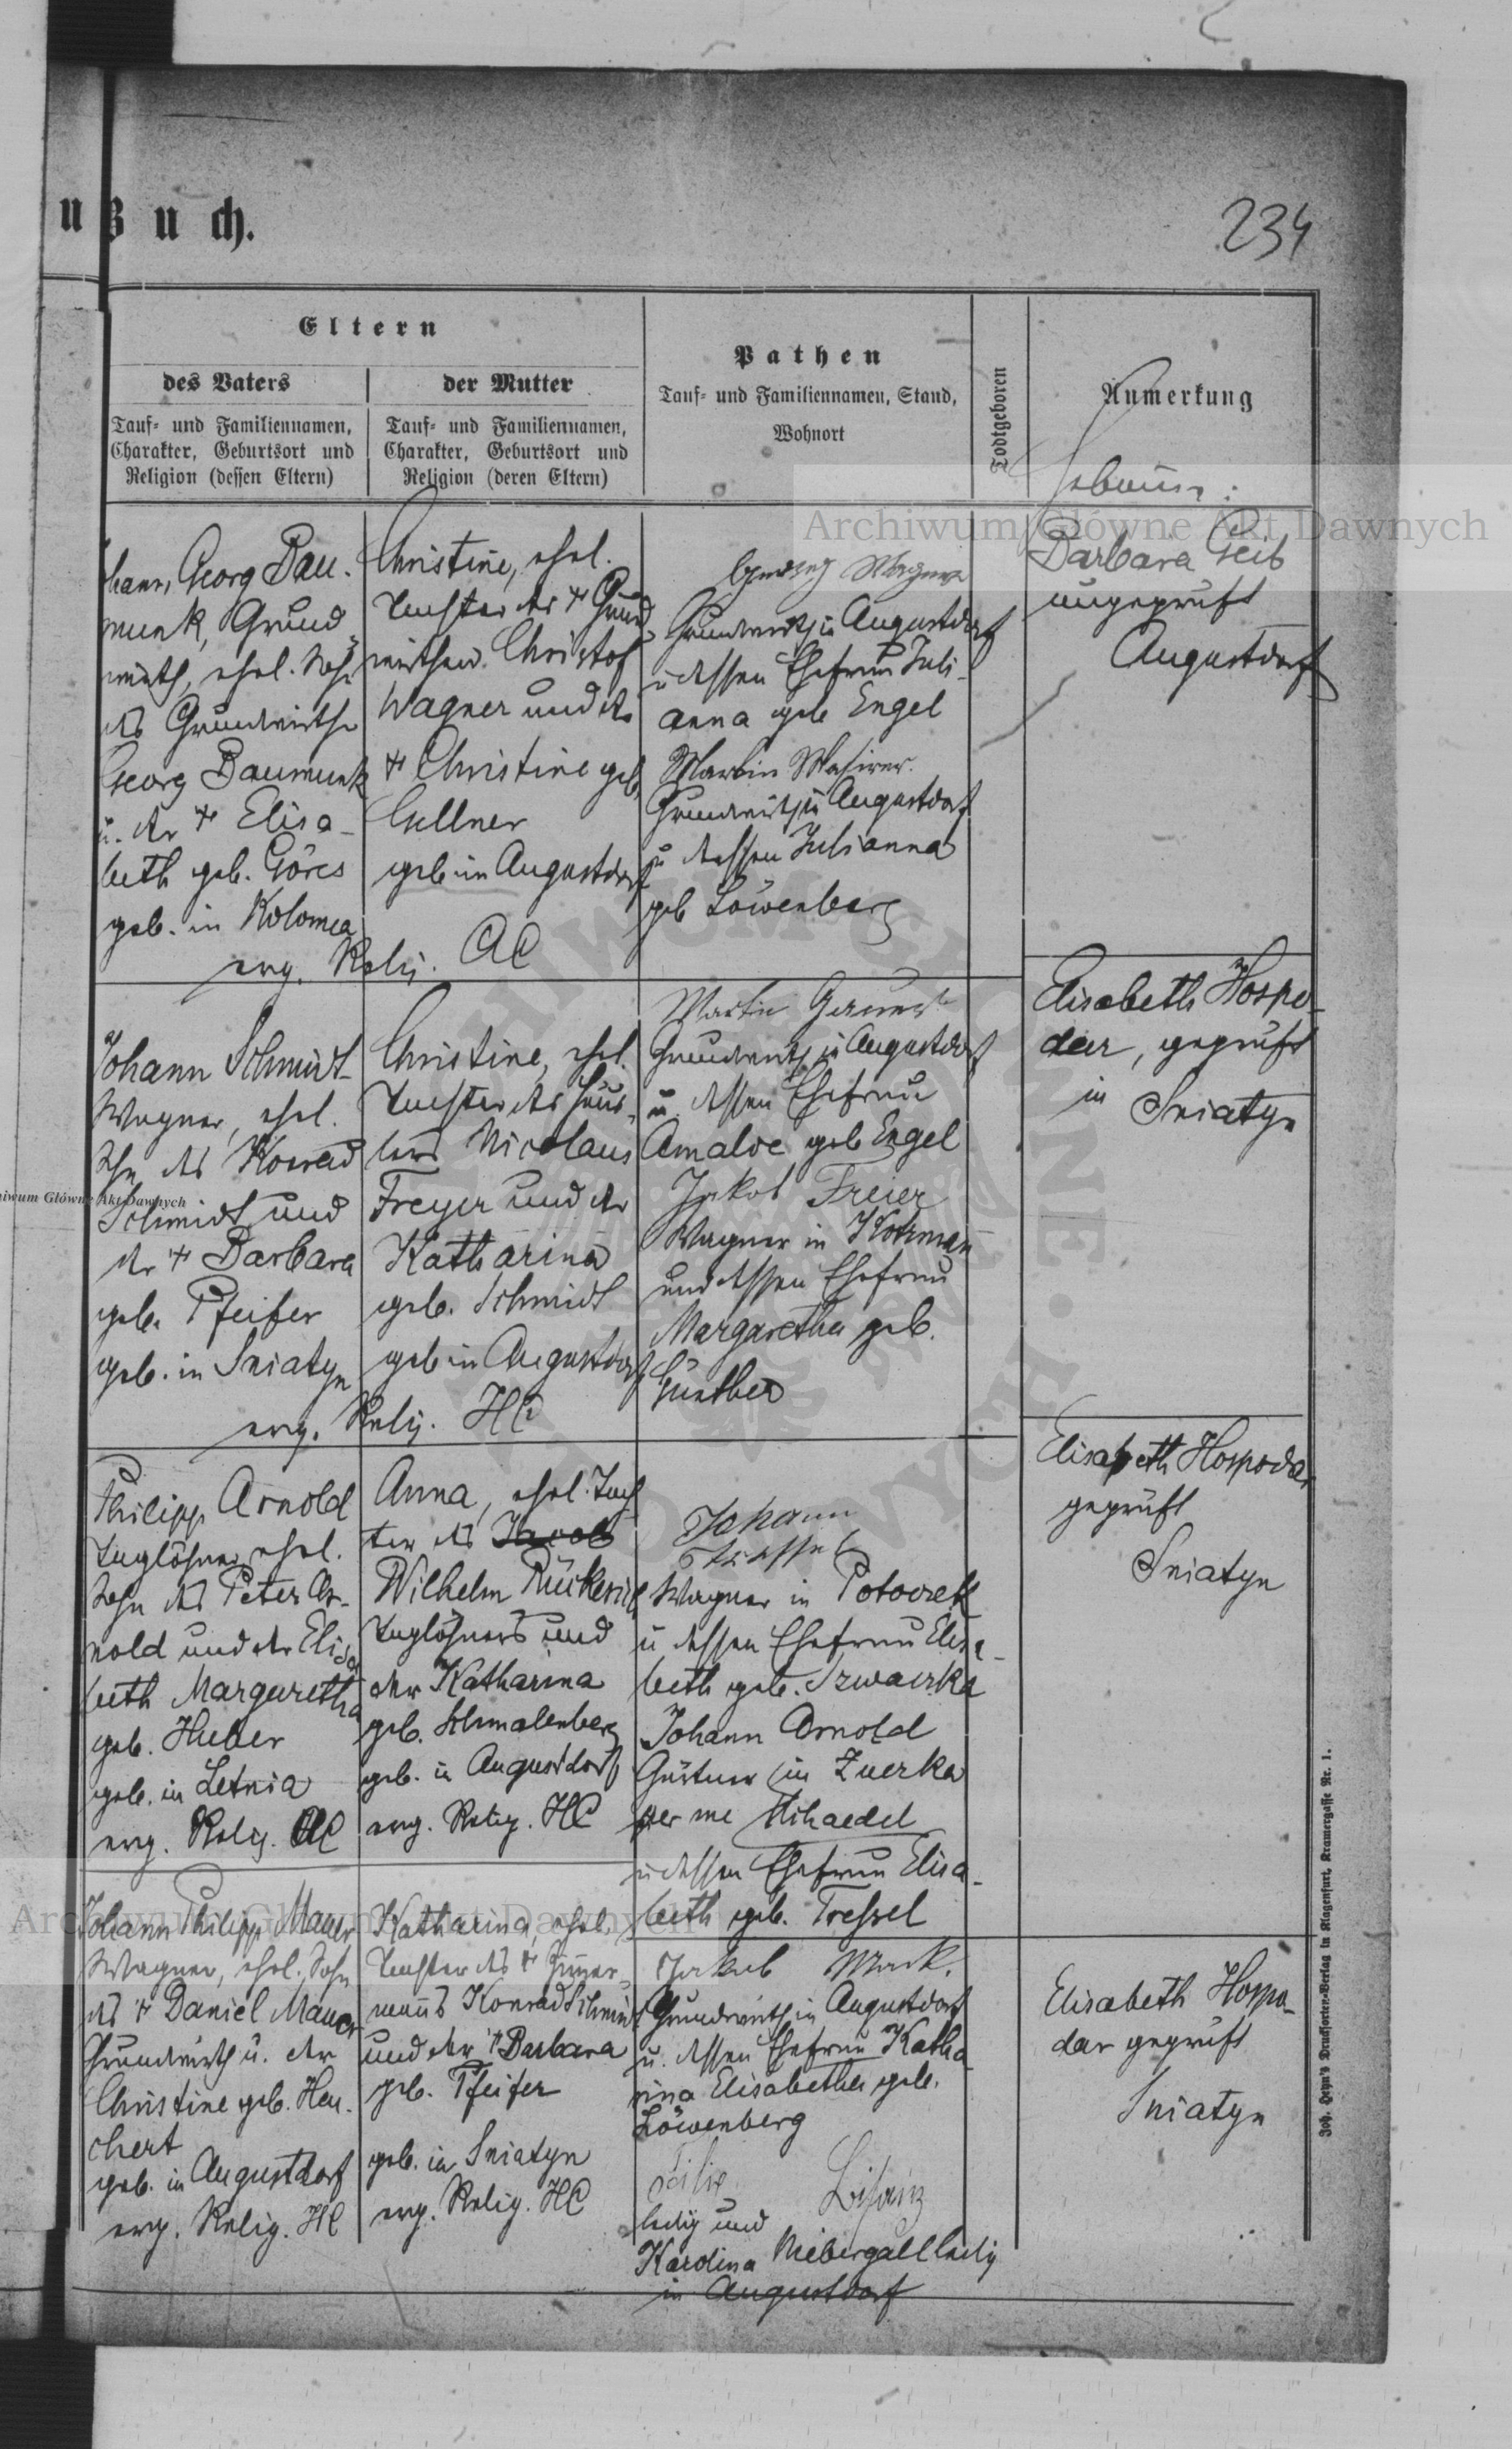 ß u ch.
234
Eltern
des Vaters
der Mutter
Tauf- und Familiennamen,
Charakter, Geburtsort und
Religion (dessen Eltern)
Tauf- und Familiennamen,
Charakter, Geburtsort und
Religion (deren Eltern)
Pathen
Tauf- und Familiennamen, Stand,
Wohnort
Todtgeboren
Anmerkung
hann Georg Bau-
munk, Grund
wirth, ehel. Sohn
des Grundwirths
Georg Baumunk
u. der + Elisa-
beth geb. Göres
geb. in Kolomea
Christine, ehel.
Tochter des + Grund
wirthen Christof
Wagner und der
+ Christine geb.
Gellner
geb in Augustdorf
evg. Relig. AC
Georg Wagner
Grundwirth in Augustdorf
u dessen Ehefrau Juli-
anna geb Engel
Martin
Grundwirth in Augustdorf
u dessen Julianna
geb Löwenberg
Barbara Geib
ungeprüft
Augustdorf
Johann Schmidt
Wagner, ehel.
Sohn des Konrad
Schmidt und
der + Barbara
geb. Pfeifer
geb. in Sniatyn
Christine, ehel.
Tochter des Häus-
lers Nicolaus
Freyer und der
Katharina
geb. Schmidt
geb in Augustdorf
evg. Relig. HC
Martin
Grundwirth in Augustdorf
u. dessen Ehefrau
Amalie geb Engel
Jakob Freier
Wagner in Kotzman
und dessen Ehefrau
Margaretha geb.
Günther
Elisabeth Hospo-
dar, geprüft
in Sniatyn
Philipp Arnold
Taglöhner, ehel.
Sohn des Peter Ar-
nold und der Elisa
beth Margaretha
geb. Huber
geb. in Letnia
evg. Relig. AC
Anna, ehel. Toch
ter des Jacob
Wilhelm Rückerich
Taglöhners und
der Katharina
geb. Schmalenberg
geb. in Augustdorf
evg. Relig. HC
Johann
Wagner in Potoczek
u dessen Ehefrau Elisa-
beth geb. Szwaczka
Johann Arnold
Gärtner in Zuczka
per me Mihaedel
u dessen Ehefrau Elisa-
beth geb. Tressel
Elisabeth Hospodar
geprüft
Sniatyn
Johann Philipp Mauer
Wagner, ehel. Sohn
des + Daniel Mauer
Grundwirth u. der
Christine geb. Heu-
chert
geb. in Augustdorf
evg. Relig. HC
Katharina, ehel.
Tochter des + Zimer-
manns Konrad Schmidt
und der + Barbara
geb. Pfeifer
geb. in Sniatyn
evg. Relig. HC
Jakob Mark.
Grundwirth in Augustdorf
u. dessen Ehefrau Katha
rina Elisabetha geb.
Löwenberg
ledig und
Karolina Niebergall ledig
in Augustdorf
Elisabeth Hospo-
dar geprüft
Sniatyn
Joh. Heyn's Drucksorten-Verlag in Klagenfurt, Kramergasse Nr. 1.
Archiwum Główne Akt Dawnych